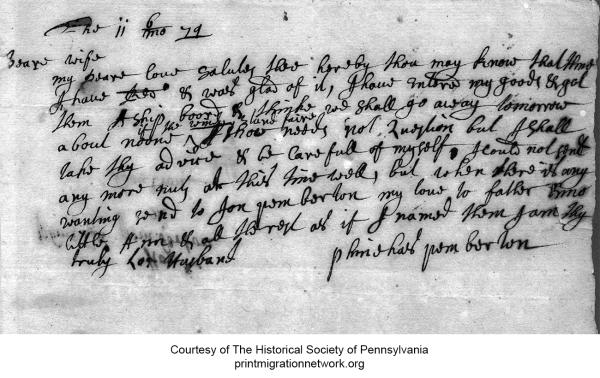 The ii 6/mo 79
Deare wife
my Deare love salutes thee hereby thou may know that thine
I have & was glad of it, I have entred my goods & got
them A ship board & thinke we shall go away tomorrow
about noone if the wind stand faire thou needs not Question but I shall
take thy advice & be carefull of myself, I could not send
any more nuts at this time well, but when there is any
wanting send to Jon pemberton my love to father
little Ann & all the rest as if I named them I am thy
truly Lov Husband
phinehas pemberton
Courtesy of The Historical Society of Pennsylvania
printmigrationnetwork.org